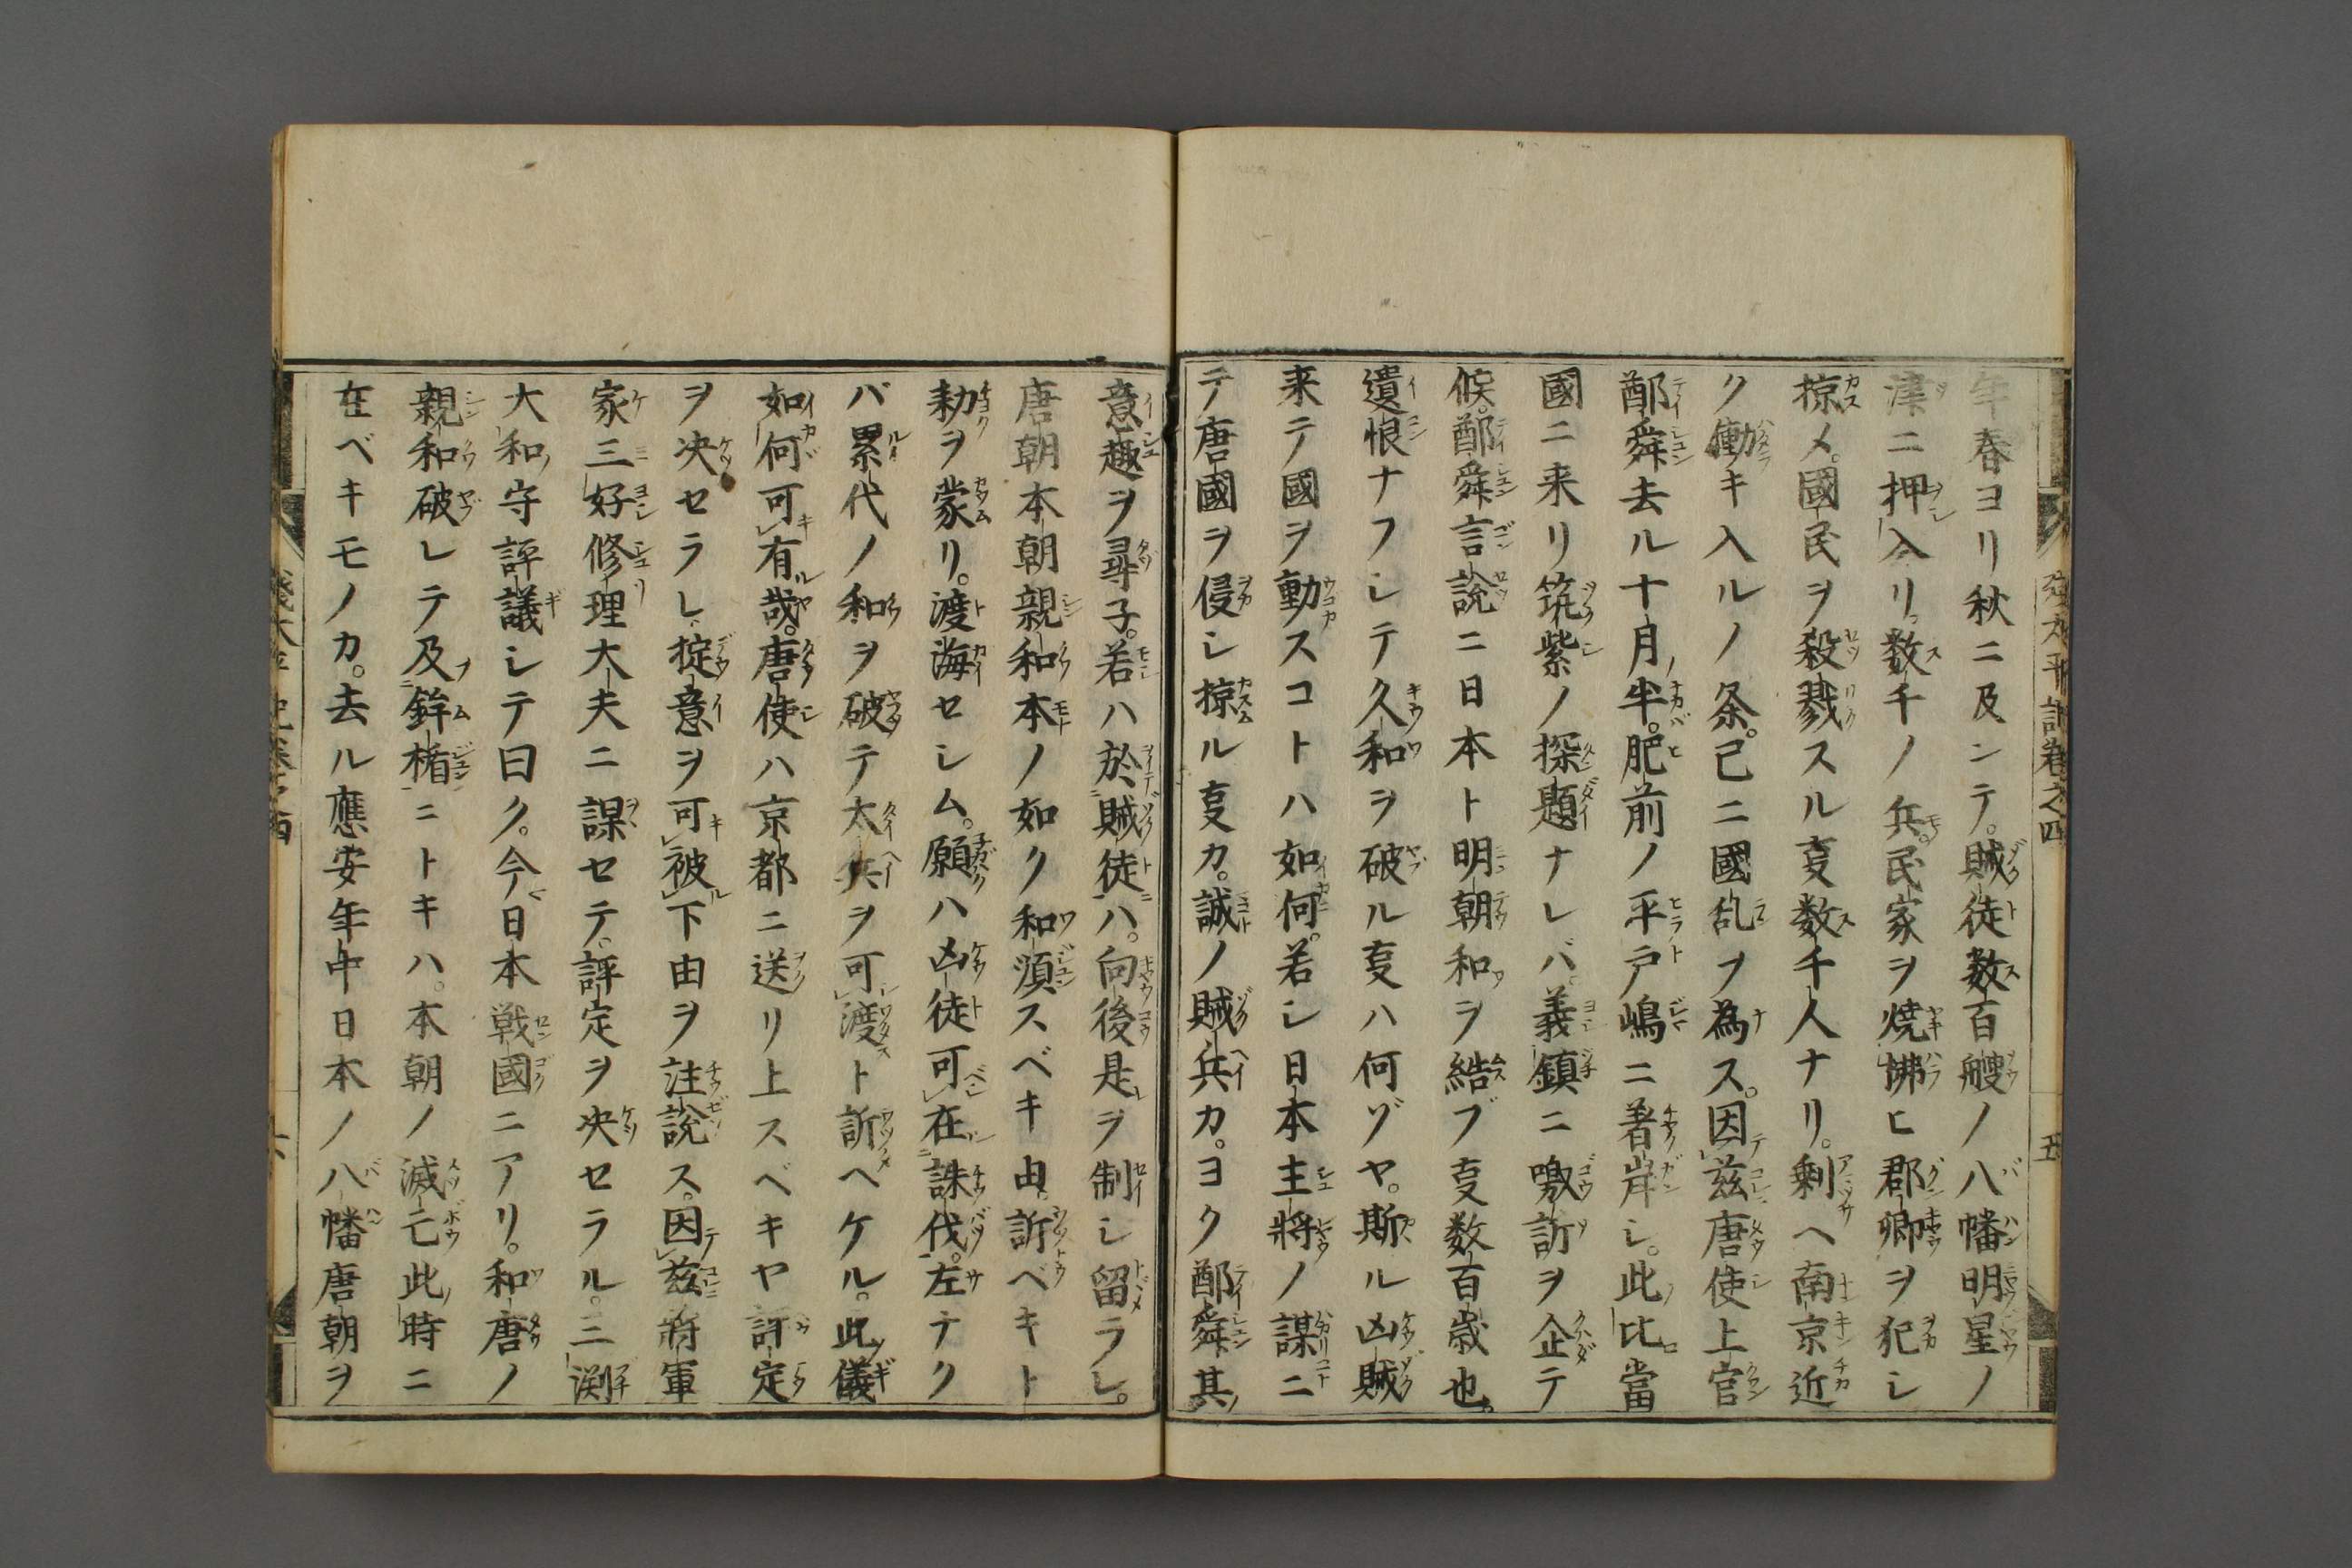 年春ヨリ秋ニ及ンテ。賊徒数百艘ノ八幡明星ノ
津ニ押入リ。数千ノ兵。民家ヲ焼拂ヒ郡郷ヲ犯シ
掠メ。國民ヲ殺戮スル㕝数千人ナリ。剰ヘ南京近
ク働キ入ルノ条。已ニ國乱ヲ為ス。因茲唐使上官
鄭舜去ル十月半。肥前ノ平戸嶋ニ着岸シ。此比當
國ニ来リ筑紫ノ探題ナレバ。義鎮ニ嗷訴ヲ企テ
候。鄭舜言説ニ日本ト明朝和ヲ結ブ㕝数百歳也。
遺恨ナフシテ久和ヲ破ル㕝ハ何ゾヤ。斯ル凶賊
来テ國ヲ動スコトハ如何。若シ日本主将ノ謀ニ
テ唐國ヲ侵シ掠ル㕝カ。誠ノ賊兵カ。ヨク鄭舜其
意趣ヲ尋子。若ハ於賊徒ハ。向後是ヲ制シ留ラシ。
唐朝本朝親和本ノ如ク和順スベキ由。訴ベキト
勅ヲ蒙リ。渡海セシム。願ハ凶徒可在誅伐。左テク
バ累代ノ和ヲ破テ太兵ヲ可渡ト訴ヘケル。此儀
如何可有哉。唐使ハ京都ニ送リ上スベキヤ評定
ヲ决セラレ。掟意ヲ可被下由ヲ註説ス。因茲将軍
家三好修理大夫ニ課セテ。評定ヲ决セラル。三渕
大和守評議シテ曰ク。今日本戦國ニアリ。和唐ノ
親和破レテ及鉾楯ニトキハ。本朝ノ滅亡此時ニ
在ベキモノカ。去ル應安年中日本ノ八幡唐朝ヲ